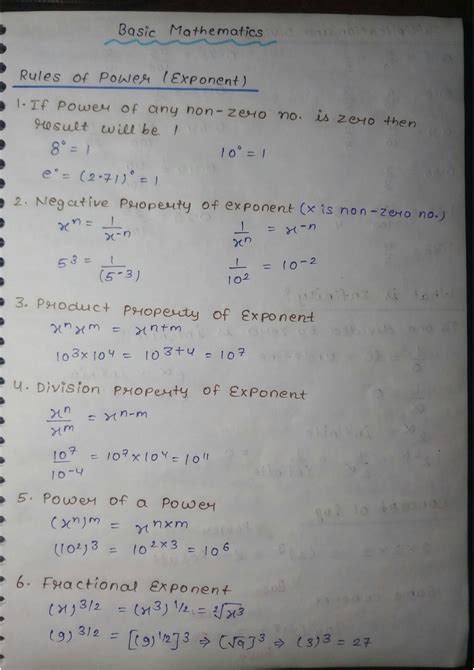 Basic Mathematics
Rules of Power (Exponent)
1. If Power of any non-zero no. is zero then
result will be 1
8⁰ = 1    10⁰ = 1
e⁰ = (2.71)⁰ = 1
2. Negative Property of exponent (x is non-zero no.)
xⁿ = 1/x⁻ⁿ    1/xⁿ = x⁻ⁿ
5³ = 1/(5⁻³)    1/10² = 10⁻²
3. Product Property of Exponent
xⁿxᵐ = xⁿ⁺ᵐ
10³×10⁴ = 10³⁺⁴ = 10⁷
4. Division Property of Exponent
xⁿ/xᵐ = xⁿ⁻ᵐ
10⁷/10⁻⁴ = 10⁷×10⁴ = 10¹¹
5. Power of a Power
(xⁿ)ᵐ = xⁿˣᵐ
(10²)³ = 10²ˣ³ = 10⁶
6. Fractional Exponent
(x)^3/2 = (x³)^1/2 = ²√x³
(9)^3/2 = [(9)^1/2]³ ⇒ (√9)³ ⇒ (3)³ = 27